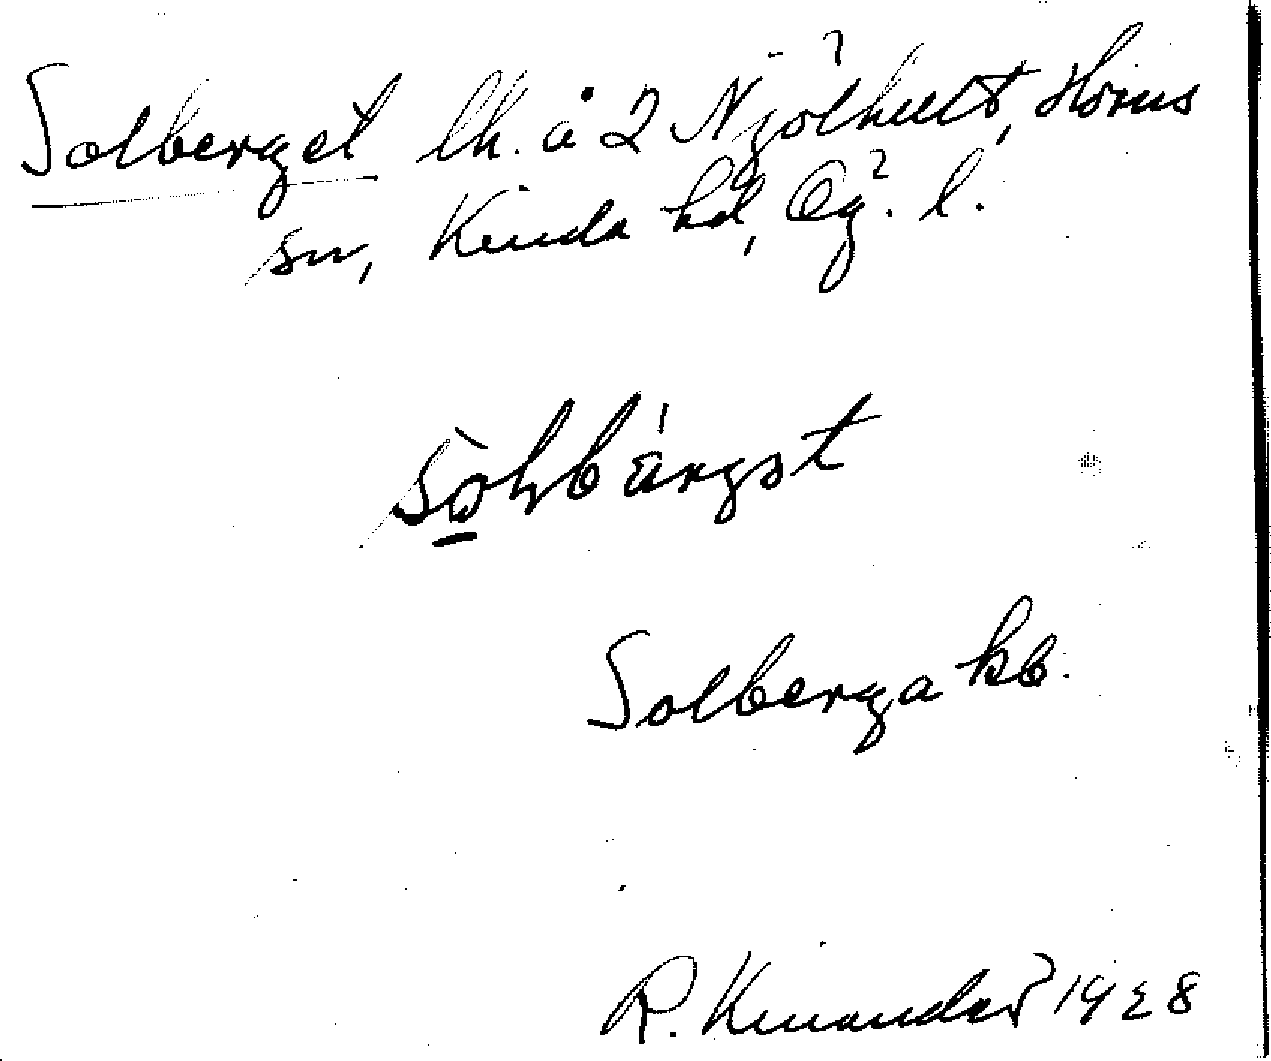 Solberget lh. å 2 Njölhult, Horns
sn, Kinda hd, Ög. l.
Solberga kb.
R. Kinander 1928